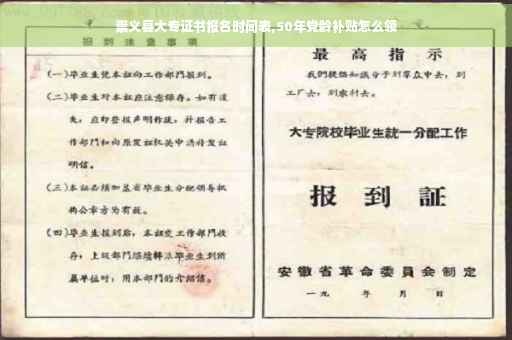 票文县大专证书报名时间表,50年党龄补贴怎么领
报到注意事项
(一)毕业生凭本证向工作部门报到。
(二)毕业生对本证应注意保存。如有遗
失,应即登报声明作废,并报告工
作部门和向原发证机关申请补发证
明信。
(三)本证必须加盖省毕业生分配领导机
构公章方为有效。
(四)毕业生报到后,本证交工作部门收
存;上级部门继续转派毕业生到所
属单位时,用本部门的介绍信。
最高指示
我们提倡知识分子到群众中去,到
工厂去,到农村去。
大专院校毕业生统一分配工作
报到证
安徽省革命委员会制定
一九 年 月 日